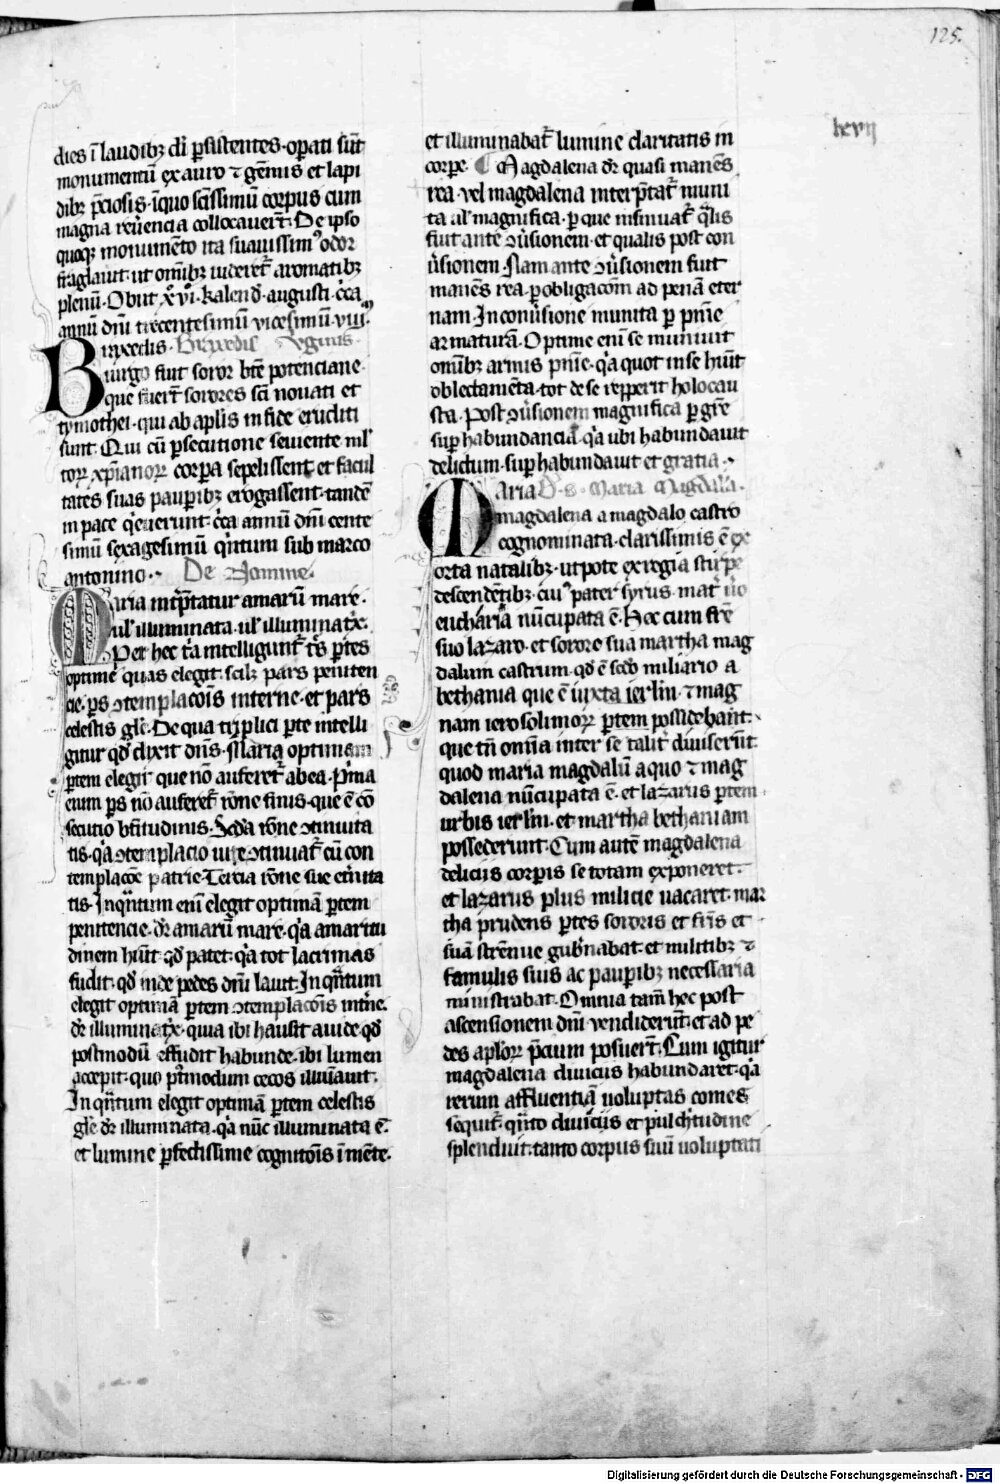 125.
lxvij
dies ĩ laudibꝫ dĩ ꝑsistentes · oꝑati sũt
monumentũ ex auro ⁊ gẽmis et lapi
dibꝫ p̃ciosis · ĩquo scĩssimũ corpus cum
magna reũencia collocauer̃t · De ipso
quoqꝫ monumẽto ita suauissimꝰ odor
fraglauit · ut omĩbꝫ uideret᷑ aromatibꝫ
plenũ · Obijt xͦvͥi · kalend̾ · augusti · c̾ca
annũ dnĩ trecentesimũ vicesimũ · viij ·
Bripxedis · Bripxedis v̾ginis
uirgo fuit soror btẽ potenciane ·
que fuer̃t sorores scĩ nouati et
tymothei · qui ab aplĩs in fide eruditi
sunt · Qui cũ ꝑsecutione seuiente ml̾
toꝝ xp̃ianoꝝ corꝑa sepelissent · et facul
tates suas pauꝑibꝫ erogassent · tandẽ
in pace q̾euerunt · c̾ca annũ dnĩ cente
simũ sexagesimũ q̾ntum sub marco
antonino · De Nomine ·
Maria int̾p̃tatur amarũ mare ·
ul̾ illuminata · ul̾ illuminat̾x ·
Per hec t̾a intelligunt᷑ t̾s ꝑtes
optime quas elegit · scilꝫ pars peniten
cie · ꝑs ↄtemplacõis interne · et pars
celestis glẽ · De qua tiplici ꝑte intelli
gitur qd̾ dixit dñs · Maria optimam
ꝑtem elegit que nõ auferet᷑ ab ea · P̾ma
enim ꝑs nõ auferet᷑ rõne finis · que ẽ cõ
secutio bt̃itudinis · Scd̾a rõne ↄtinuita
tis · q̾a ↄtemplacio uie ↄtinuat᷑ cũ con
templacõe patrie · Tercia rõne sue et̾nita
tis · Inq̃ntum enĩ elegit optimã ꝑtem
penitencie · dr̃ amarũ mare · q̾a amaritu
dinem hũit · qd̾ patet · q̾a tot lacrimas
fudit · qd̾ inde pedes dnĩ lauit · Inq̃ntum
elegit optimã ꝑtem ↄtemplacõis int̾ne ·
dr̃ illuminat̾x · quia ibi hausit auide qd̾
postmodũ effudit habunde · ibi lumen
accepit · quo p̾tmodum cecos illuĩauit ·
Inq̃ntum elegit optimã ꝑtem celestis
glẽ dr̃ illuminata · q̾a nũc illuminata ẽ ·
et lumine ꝑfectissime cognitõis ĩ mẽte ·
et illuminabat᷑ lumine claritatis in
corꝑe · ¶ Magdalena dr̃ quasi manẽs
rea · vel magdalena interp̃tat᷑ muni
ta ul̾ magnifica · ꝑ que insinuat᷑ q̃lis
fuit ante ↄũsionem · et qualis post con
ũsionem · Nam ante ↄũsionem fuit
manẽs rea · ꝑ obligacõm ad penã eter
nam · In conũsione munita ꝑ pñie
armaturã · Optime enĩ se muniuit
omĩbꝫ armis pñie · q̾a quot in se hũit
oblectamẽta · tot de se repperit holocau
sta · Post ↄũsionem magnifica ꝑ gr̃e
suꝑhabundanciã · q̾a ubi habundauit
delictum · suꝑhabundauit et gratia ·
Maria D · S · Maria Magdale ·
magdalena a magdalo castro
cognominata · clarissimis ẽ ex
orta natalibꝫ · utpote ex regia stirpe
descendẽtibꝫ · cuiꝰ pater syrus · mat̾ ũo
eucharia nũcupata ẽ · Hec cum fr̃e
suo lazaro · et sorore sua martha mag
dalum castrum · qd̾ ẽ scd̾o miliario a
bethania que ẽ iuxta ierl̃m · ⁊ mag
nam ierosolimoꝝ ꝑtem possidebant ·
que tñ omĩa inter se talit̾ diuiserũt
quod maria magdalũ a quo ⁊ mag
dalena nũcupata ẽ · et lazarus ꝑtem
urbis ierl̃m · et martha bethaniam
possederunt · Cum autẽ magdalena
delicijs corꝑis se totam exponeret ·
et lazarus plus milicie uacaret · mar
tha prudens ꝑtes sororis et fr̃is et
suã strẽnue gub̾nabat · et militibꝫ ⁊
famulis suis ac pauꝑibꝫ necessaria
ministrabat · Omnia tam̃ hec post
ascensionem dnĩ vendiderũt · et ad pe
des aploꝝ p̃cium posuer̃t · Cum igitur
magdalena diuicijs habundaret · q̾a
rerum affluentiã uoluptas comes
sequit᷑ · q̃nto diuicijs et pulchitudine
splenduit · tanto corpus suũ uoluptati
Digitalisierung gefördert durch die Deutsche Forschungsgemeinschaft - DFG